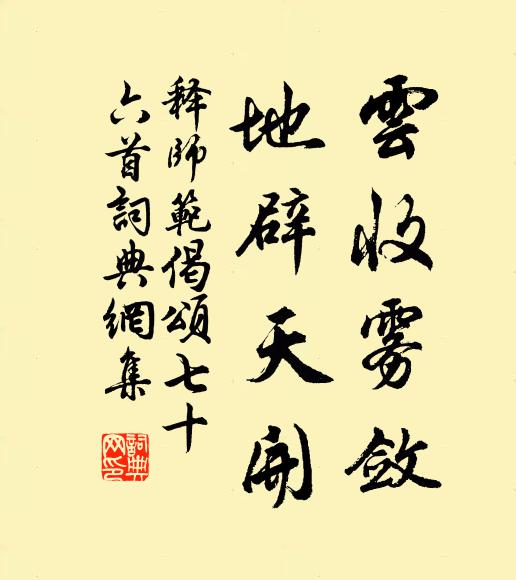 雲收雾斂
地辟天開
释師範偈頌七十
六首詞典網集
詞典網印